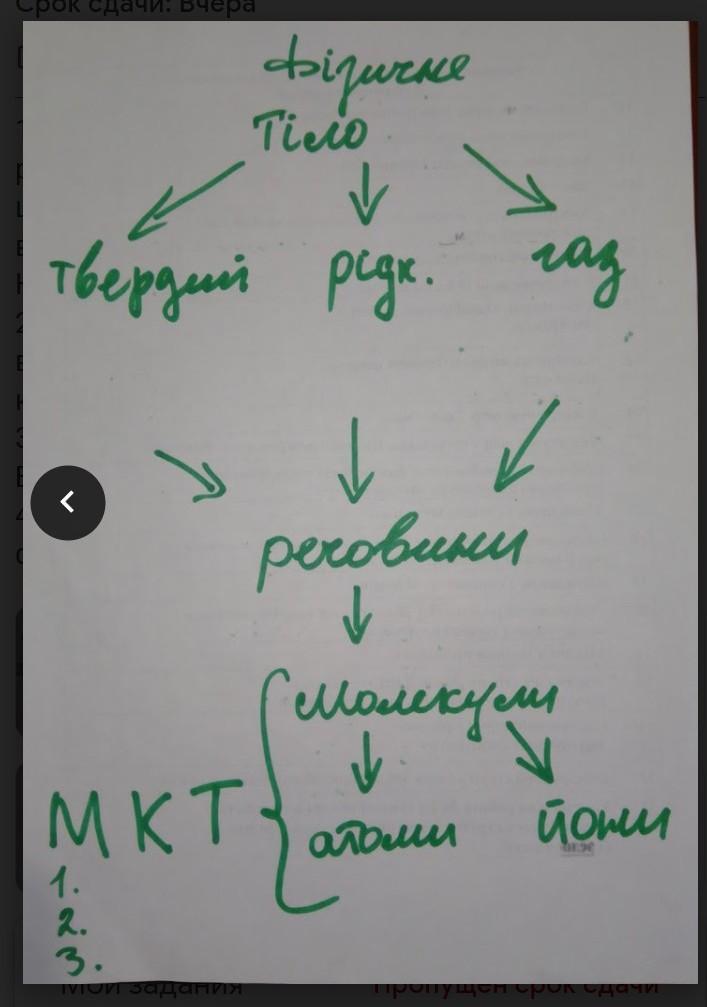 Срок сдачи: Вчера
Фізичне
Тіло
твердий рідк. газ
речовини
Молекули
атоми йони
М К Т
1.
2.
3.
Мои задания Пропущен срок сдачи